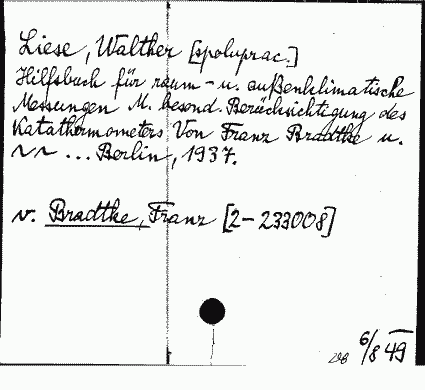 Liese, Walther [spoluprac.]
Hilfsbuch für raum- u. außenklimatische
Messungen M. besond. Berücksichtigung des
Katathermometers Von Franz Bradtke u.
~~ ... Berlin, 1937.
v. Bradtke, Franz [2-233008]
6/8 49